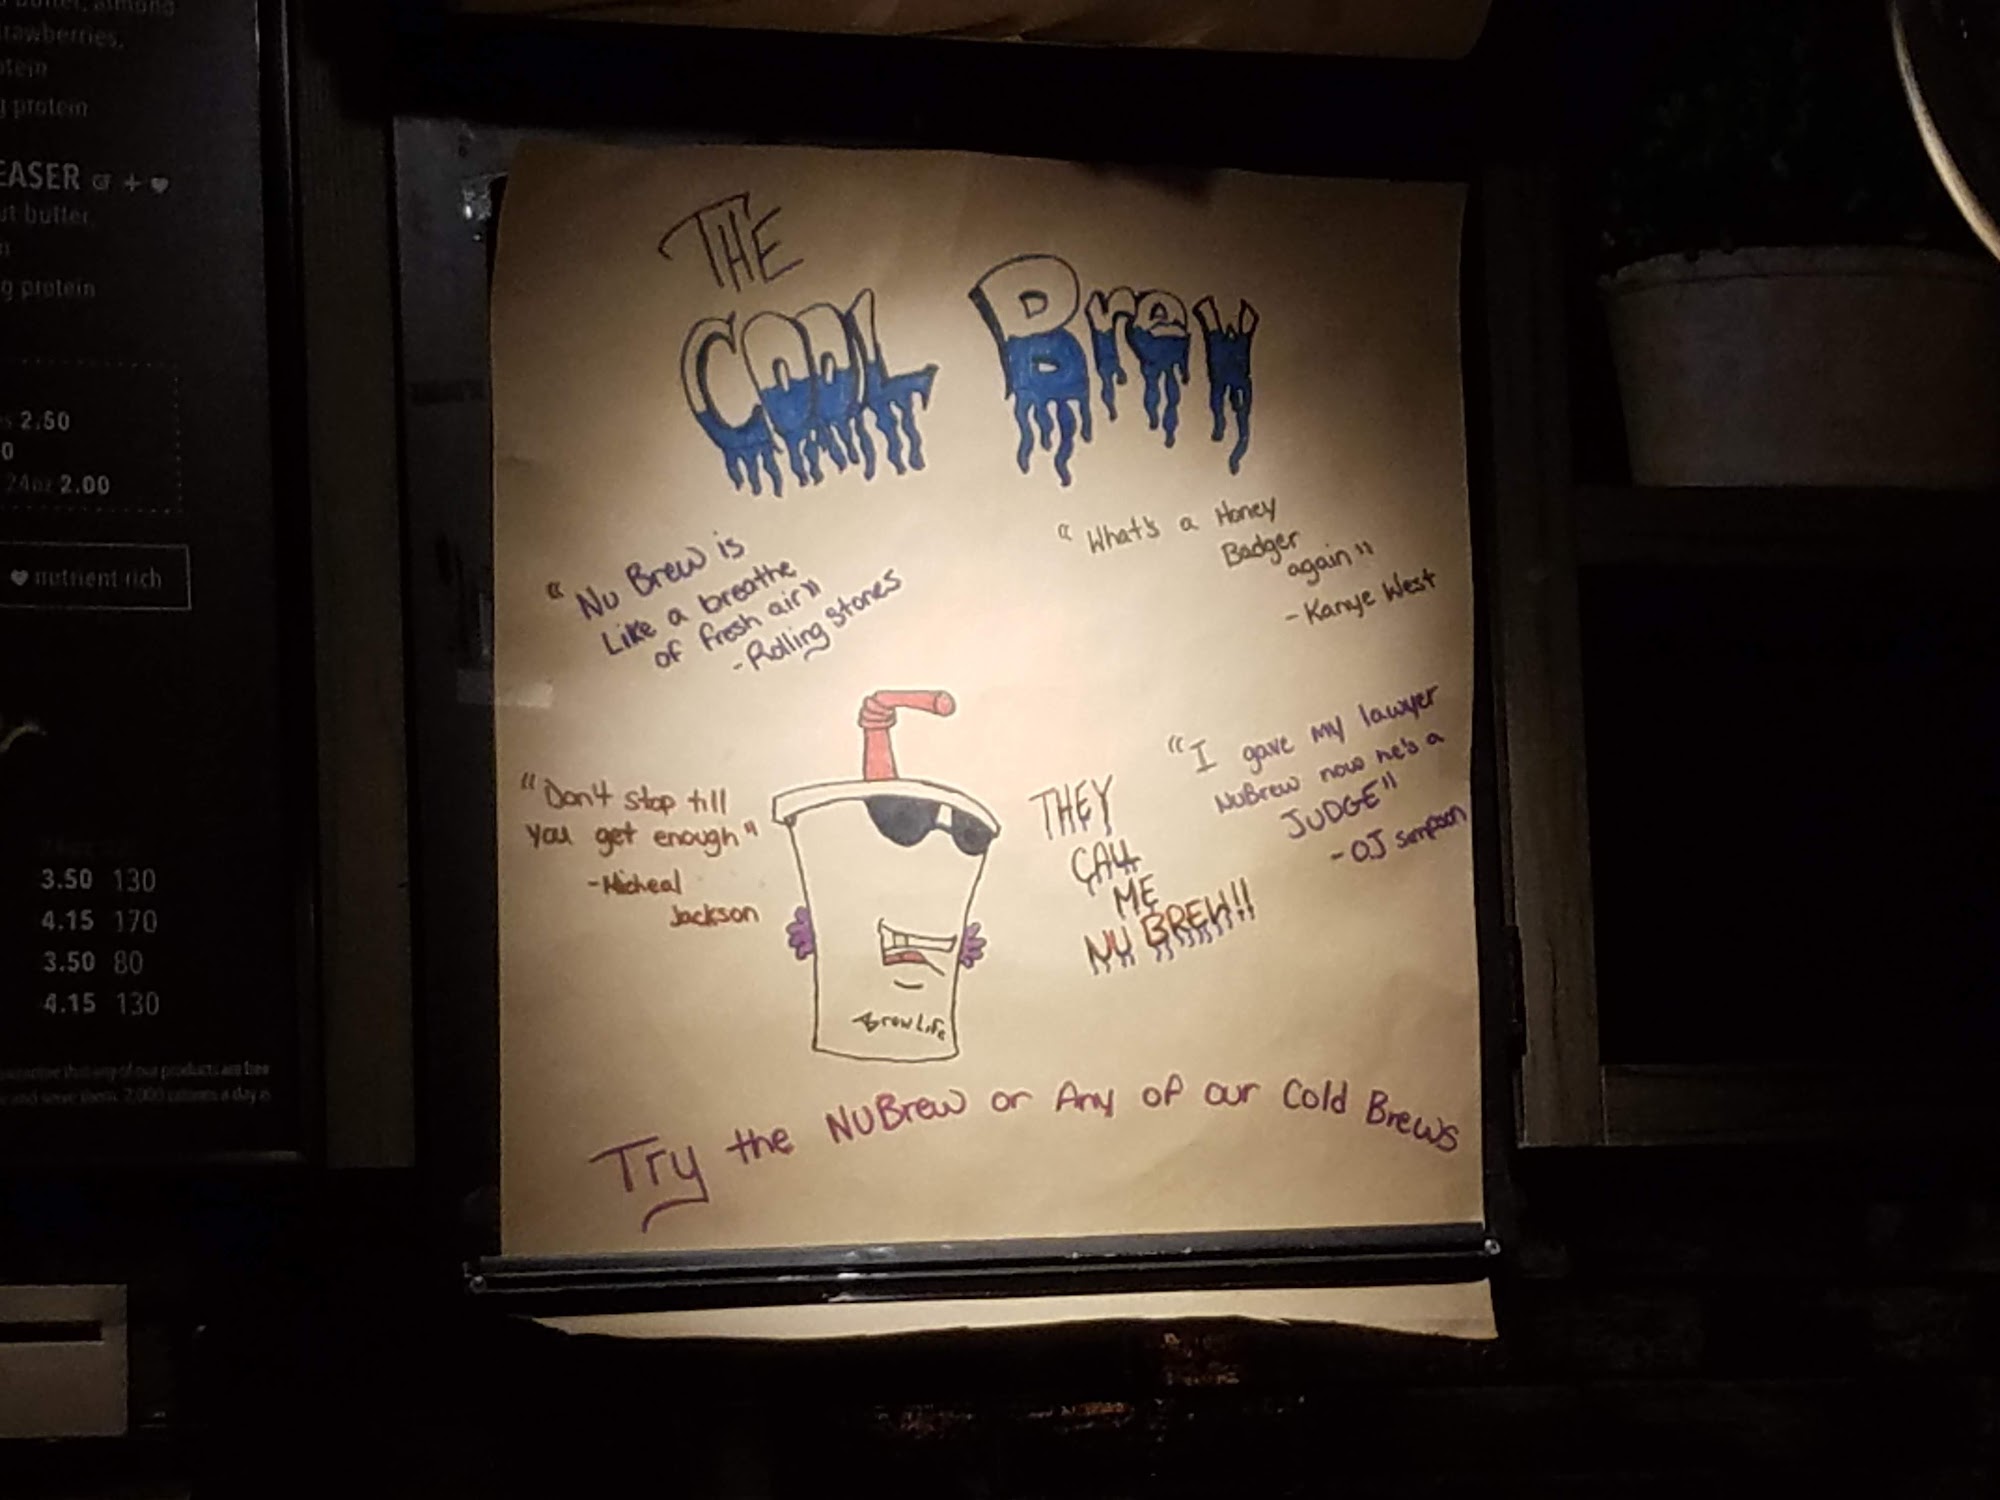 THE
COOL Brew
"Nu Brew is
Like a breathe
of fresh air"
-Rolling stones
"What's a Honey
Badger
again"
-Kanye West
"Don't stop till
you get enough"
-Micheal
Jackson
"I gave my lawyer
NuBrew now he's a
JUDGE"
-OJ simpson
THEY
CALL
ME
NU BREW!!
Brew Life
Try the NUBrew or Any of our Cold Brews
butter, almond
protein
g protein
EASER + ♥
butter,
g protein
2.50
0
24oz 2.00
♥ nutrient rich
3.50 130
4.15 170
3.50 80
4.15 130
any of our products are free
and serve them. 2,000 calories a day is